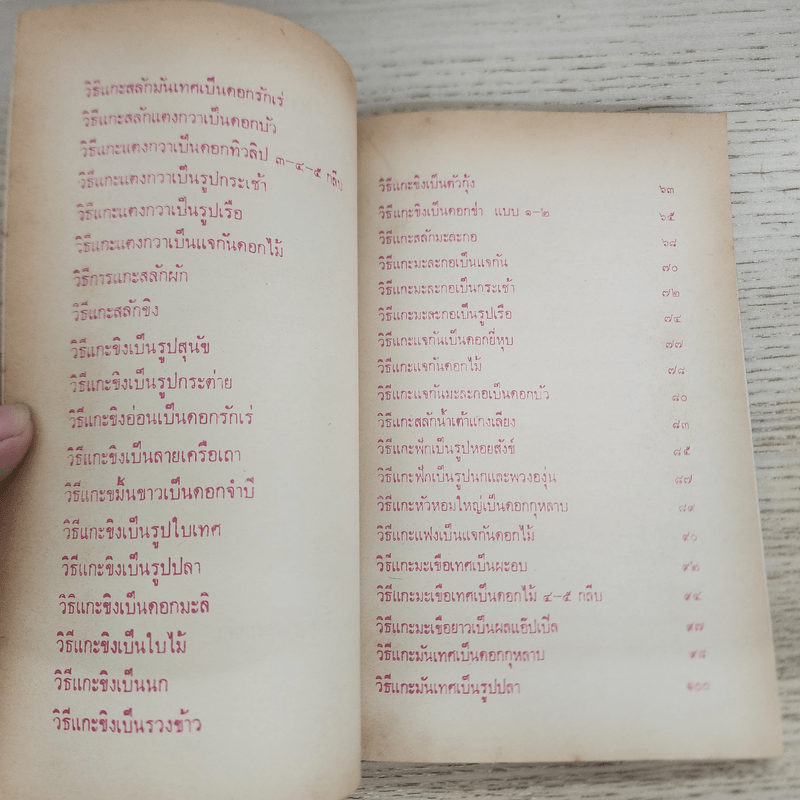 วิธีแกะสลักมันเทศเป็นดอกรักเร่
วิธีแกะสลักแตงกวาเป็นดอกบัว
วิธีแกะแตงกวาเป็นดอกทิวลิป ๓-๔-๕ กลีบ
วิธีแกะแตงกวาเป็นรูปกระเช้า
วิธีแกะแตงกวาเป็นรูปเรือ
วิธีแกะแตงกวาเป็นแจกันดอกไม้
วิธีการแกะสลักผัก
วิธีแกะสลักขิง
วิธีแกะขิงเป็นรูปสุนัข
วิธีแกะขิงเป็นรูปกระต่าย
วิธีแกะขิงอ่อนเป็นดอกรักเร่
วิธีแกะขิงเป็นลายเครือเถา
วิธีแกะขมิ้นขาวเป็นดอกจำปี
วิธีแกะขิงเป็นรูปใบเทศ
วิธีแกะขิงเป็นรูปปลา
วิธิแกะขิงเป็นดอกมะลิ
วิธีแกะขิงเป็นใบไม้
วิธีแกะขิงเป็นนก
วิธีแกะขิงเป็นรวงข้าว
วิธีแกะขิงเป็นตัวกุ้ง ๖๓
วิธีแกะขิงเป็นดอกข่า แบบ ๑-๒ ๖๕
วิธีแกะสลักมะละกอ ๖๘
วิธีแกะมะละกอเป็นแจกัน ๗๐
วิธีแกะมะละกอเป็นกระเช้า ๗๒
วิธีแกะมะละกอเป็นรูปเรือ ๗๔
วิธีแกะแจกันเป็นดอกยี่หุบ ๗๗
วิธีแกะแจกันดอกไม้ ๗๘
วิธีแกะแจกันมะละกอเป็นดอกบัว ๘๐
วิธีแกะสลักน้ำเต้าแกงเลียง ๘๓
วิธีแกะฟักเป็นรูปหอยสังข์ ๘๕
วิธีแกะฟักเป็นรูปนกและพวงองุ่น ๘๗
วิธีแกะหัวหอมใหญ่เป็นดอกกุหลาบ ๘๙
วิธีแกะแฟงเป็นแจกันดอกไม้ ๙๐
วิธีแกะมะเขือเทศเป็นผะอบ ๙๒
วิธีแกะมะเขือเทศเป็นดอกไม้ ๔-๕ กลีบ ๙๔
วิธีแกะมะเขือยาวเป็นผลแอ๊ปเปิ้ล ๙๗
วิธีแกะมันเทศเป็นดอกกุหลาบ ๙๘
วิธีแกะมันเทศเป็นรูปปลา ๑๐๐